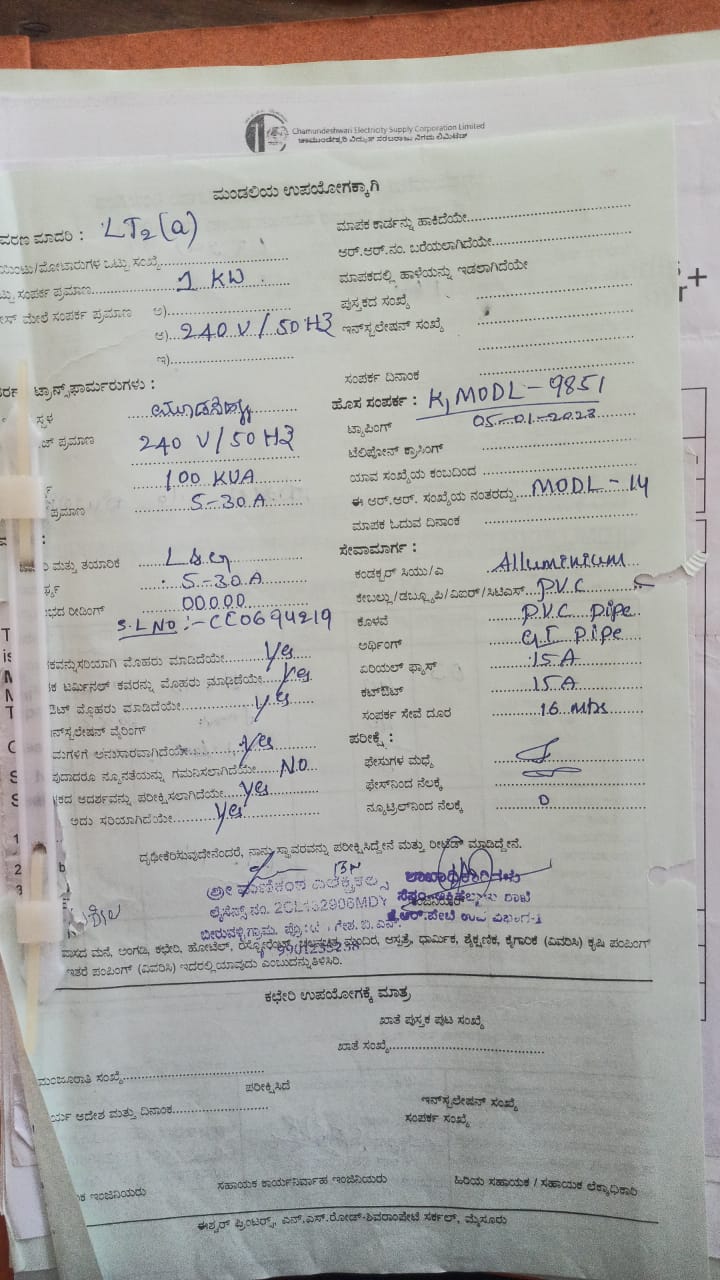 Chamundeshwari Electricity Supply Corporation Limited
ಚಾಮುಂಡೇಶ್ವರಿ ವಿದ್ಯುತ್ ಸರಬರಾಜು ನಿಗಮ ಲಿಮಿಟೆಡ್
ಮಂಡಲಿಯ ಉಪಯೋಗಕ್ಕಾಗಿ
ವರಣ ಮಾದರಿ : LT2(a)
ಯಿಂಟು/ಮೋಟಾರುಗಳ ಒಟ್ಟು ಸಂಖ್ಯೆ
ಟ್ಟು ಸಂಪರ್ಕ ಪ್ರಮಾಣ 1 KW
ಮೇಲೆ ಸಂಪರ್ಕ ಪ್ರಮಾಣ ಅ)
ಆ) 240 V/50 HZ
ಇ)
ಟ್ರಾನ್ಸ್‌ಫಾರ್ಮರುಗಳು :
ಸ್ಥಳ
ಪ್ರಮಾಣ 240 V/50 HZ
100 KVA
ಪ್ರಮಾಣ 5-30A
ಮತ್ತು ತಯಾರಿಕ L&G
5-30A
ರೀಡಿಂಗ್ 00000
S.L NO :- CE0694219
ಕವನ್ನುಸರಿಯಾಗಿ ಮೊಹರು ಮಾಡಿದೆಯೇ Yes
ಕ ಟರ್ಮಿನಲ್ ಕವರನ್ನು ಮೊಹರು ಮಾಡಿದೆಯೇ Yes
ಔಟ್ ಮೊಹರು ಮಾಡಿದೆಯೇ Yes
ಇನ್‌ಸ್ಟಲೇಷನ್ ವೈರಿಂಗ್
ಮಗಳಿಗೆ ಅನುಸಾರವಾಗಿದೆಯೇ Yes
ವುದಾದರೂ ನ್ಯೂನತೆಯನ್ನು ಗಮನಿಸಲಾಗಿದೆಯೇ NO
ಕದ ಆದರ್ಶವನ್ನು ಪರೀಕ್ಷಿಸಲಾಗಿದೆಯೇ Yes
ಅದು ಸರಿಯಾಗಿದೆಯೇ Yes
ಮಾಪಕ ಕಾರ್ಡನ್ನು ಹಾಕಿದೆಯೇ
ಆರ್.ಆರ್.ನಂ. ಬರೆಯಲಾಗಿದೆಯೇ
ಮಾಪಕದಲ್ಲಿ ಹಾಳೆಯನ್ನು ಇಡಲಾಗಿದೆಯೇ
ಪುಸ್ತಕದ ಸಂಖ್ಯೆ
ಇನ್‌ಸ್ಟಲೇಷನ್ ಸಂಖ್ಯೆ
ಸಂಪರ್ಕ ದಿನಾಂಕ
ಹೊಸ ಸಂಪರ್ಕ : K,MODL-9851
ಟ್ಯಾಪಿಂಗ್ 05-01-2023
ಟೆಲಿಪೋನ್ ಕ್ರಾಸಿಂಗ್
ಯಾವ ಸಂಖ್ಯೆಯ ಕಂಬದಿಂದ
ಈ ಆರ್.ಆರ್. ಸಂಖ್ಯೆಯ ನಂತರದ್ದು MODL-14
ಮಾಪಕ ಓದುವ ದಿನಾಂಕ
ಸೇವಾಮಾರ್ಗ :
ಕಂಡಕ್ಟರ್ ಸಿಯು/ಎ Alluminium
ಕೇಬಲ್ಲು/ಡಬ್ಲ್ಯೂಪಿ/ವಿಐಆರ್/ಸಿಟಿಎಸ್ PVC
ಕೊಳವೆ P.V.C pipe
ಅರ್ಥಿಂಗ್ G.I pipe
ಏರಿಯಲ್ ಫ್ಯೂಸ್ 15A
ಕಟ್‌ಔಟ್ 15A
ಸಂಪರ್ಕ ಸೇವೆ ದೂರ 16 mts
ಪರೀಕ್ಷೆ :
ಫೇಸುಗಳ ಮಧ್ಯೆ
ಫೇಸ್‌ನಿಂದ ನೆಲಕ್ಕೆ
ನ್ಯೂಟ್ರಿಲ್‌ನಿಂದ ನೆಲಕ್ಕೆ 0
ದೃಢೀಕರಿಸುವುದೇನೆಂದರೆ, ನಾನು ಸ್ಥಾವರವನ್ನು ಪರೀಕ್ಷಿಸಿದ್ದೇನೆ ಮತ್ತು ರೀಟೆಡ್ ಮಾಡಿದ್ದೇನೆ.
ಲೈಸೆನ್ಸ್ ನಂ. 2CL132906MDY
ಬೀರುವಳ್ಳಿ ಗ್ರಾಮ
ಶಾಖಾಧಿಕಾರಿಗಳು
ಕೆ.ಆರ್.ಪೇಟೆ ಉಪ ವಿಭಾಗ-1
ವಾಸದ ಮನೆ, ಅಂಗಡಿ, ಕಛೇರಿ, ಹೋಟೆಲ್, ರೆಸ್ಟೋರೆಂಟ್, ಚಲನಚಿತ್ರ ಮಂದಿರ, ಆಸ್ಪತ್ರೆ, ಧಾರ್ಮಿಕ, ಶೈಕ್ಷಣಿಕ, ಕೈಗಾರಿಕೆ (ವಿವರಿಸಿ) ಕೃಷಿ ಪಂಪಿಂಗ್
ಇತರೆ ಪಂಪಿಂಗ್ (ವಿವರಿಸಿ) ಇದರಲ್ಲಿ ಯಾವುದು ಎಂಬುದನ್ನು ತಿಳಿಸಿರಿ.
ಕಛೇರಿ ಉಪಯೋಗಕ್ಕೆ ಮಾತ್ರ
ಖಾತೆ ಪುಸ್ತಕ ಪುಟ ಸಂಖ್ಯೆ
ಖಾತೆ ಸಂಖ್ಯೆ
ಮಂಜೂರಾತಿ ಸಂಖ್ಯೆ
ಪರೀಕ್ಷಿಸಿದೆ
ರ್ಯ ಆದೇಶ ಮತ್ತು ದಿನಾಂಕ
ಇನ್‌ಸ್ಟಲೇಷನ್ ಸಂಖ್ಯೆ
ಸಂಪರ್ಕ ಸಂಖ್ಯೆ
ಕ ಇಂಜಿನಿಯರು
ಸಹಾಯಕ ಕಾರ್ಯನಿರ್ವಾಹ ಇಂಜಿನಿಯರು
ಹಿರಿಯ ಸಹಾಯಕ / ಸಹಾಯಕ ಲೆಕ್ಕಾಧಿಕಾರಿ
ಈಶ್ವರ್ ಪ್ರಿಂಟರ್ಸ್, ಎನ್.ಎಸ್.ರೋಡ್-ಶಿವರಾಂಪೇಟೆ ಸರ್ಕಲ್, ಮೈಸೂರು